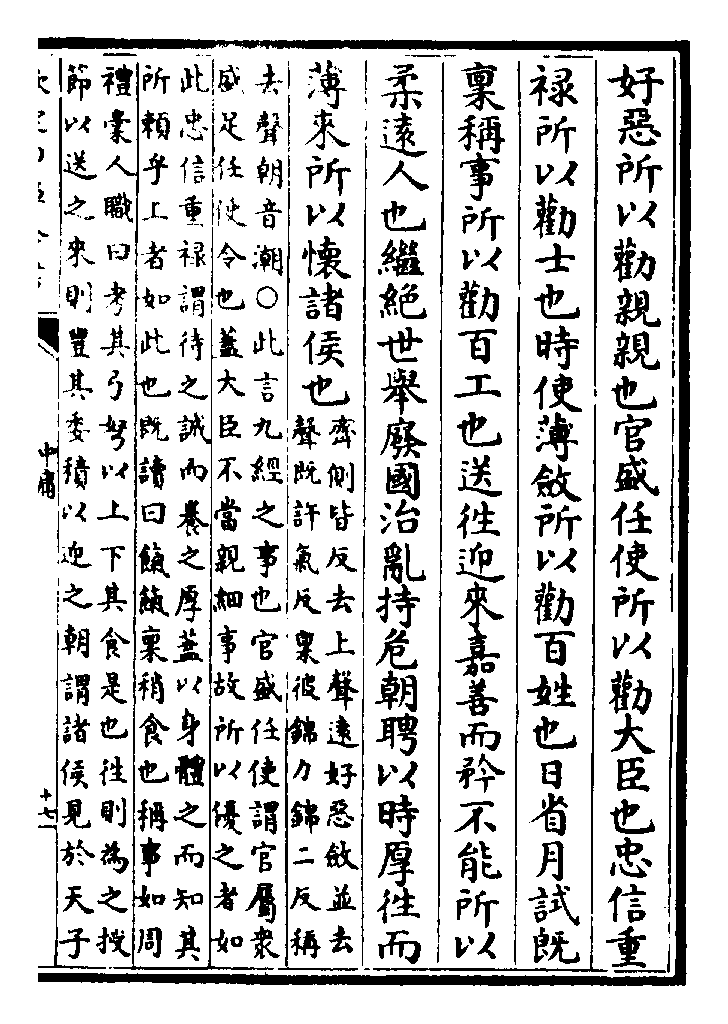 好惡所以勸親親也官盛任使所以勸大臣也忠信重
禄所以勸士也時使薄斂所以勸百姓也日省月試既
稟稱事所以勸百工也送徃迎來嘉善而矜不能所以
柔逺人也繼絶世舉廢國治亂持危朝聘以時厚徃而
薄來所以懷諸侯也
齊側皆反去上聲逺好惡斂並去
聲既許氣反稟彼錦力錦二反稱
去聲朝音潮○此言九經之事也官盛任使謂官屬衆
盛足任使令也蓋大臣不當親細事故所以優之者如
此忠信重禄謂待之誠而養之厚蓋以身體之而知其
所賴乎上者如此也既讀曰餼餼稟稍食也稱事如周
禮槀人職曰考其弓弩以上下其食是也徃則為之授
節以送之來則豐其委積以迎之朝謂諸侯見於天子
中庸
十七